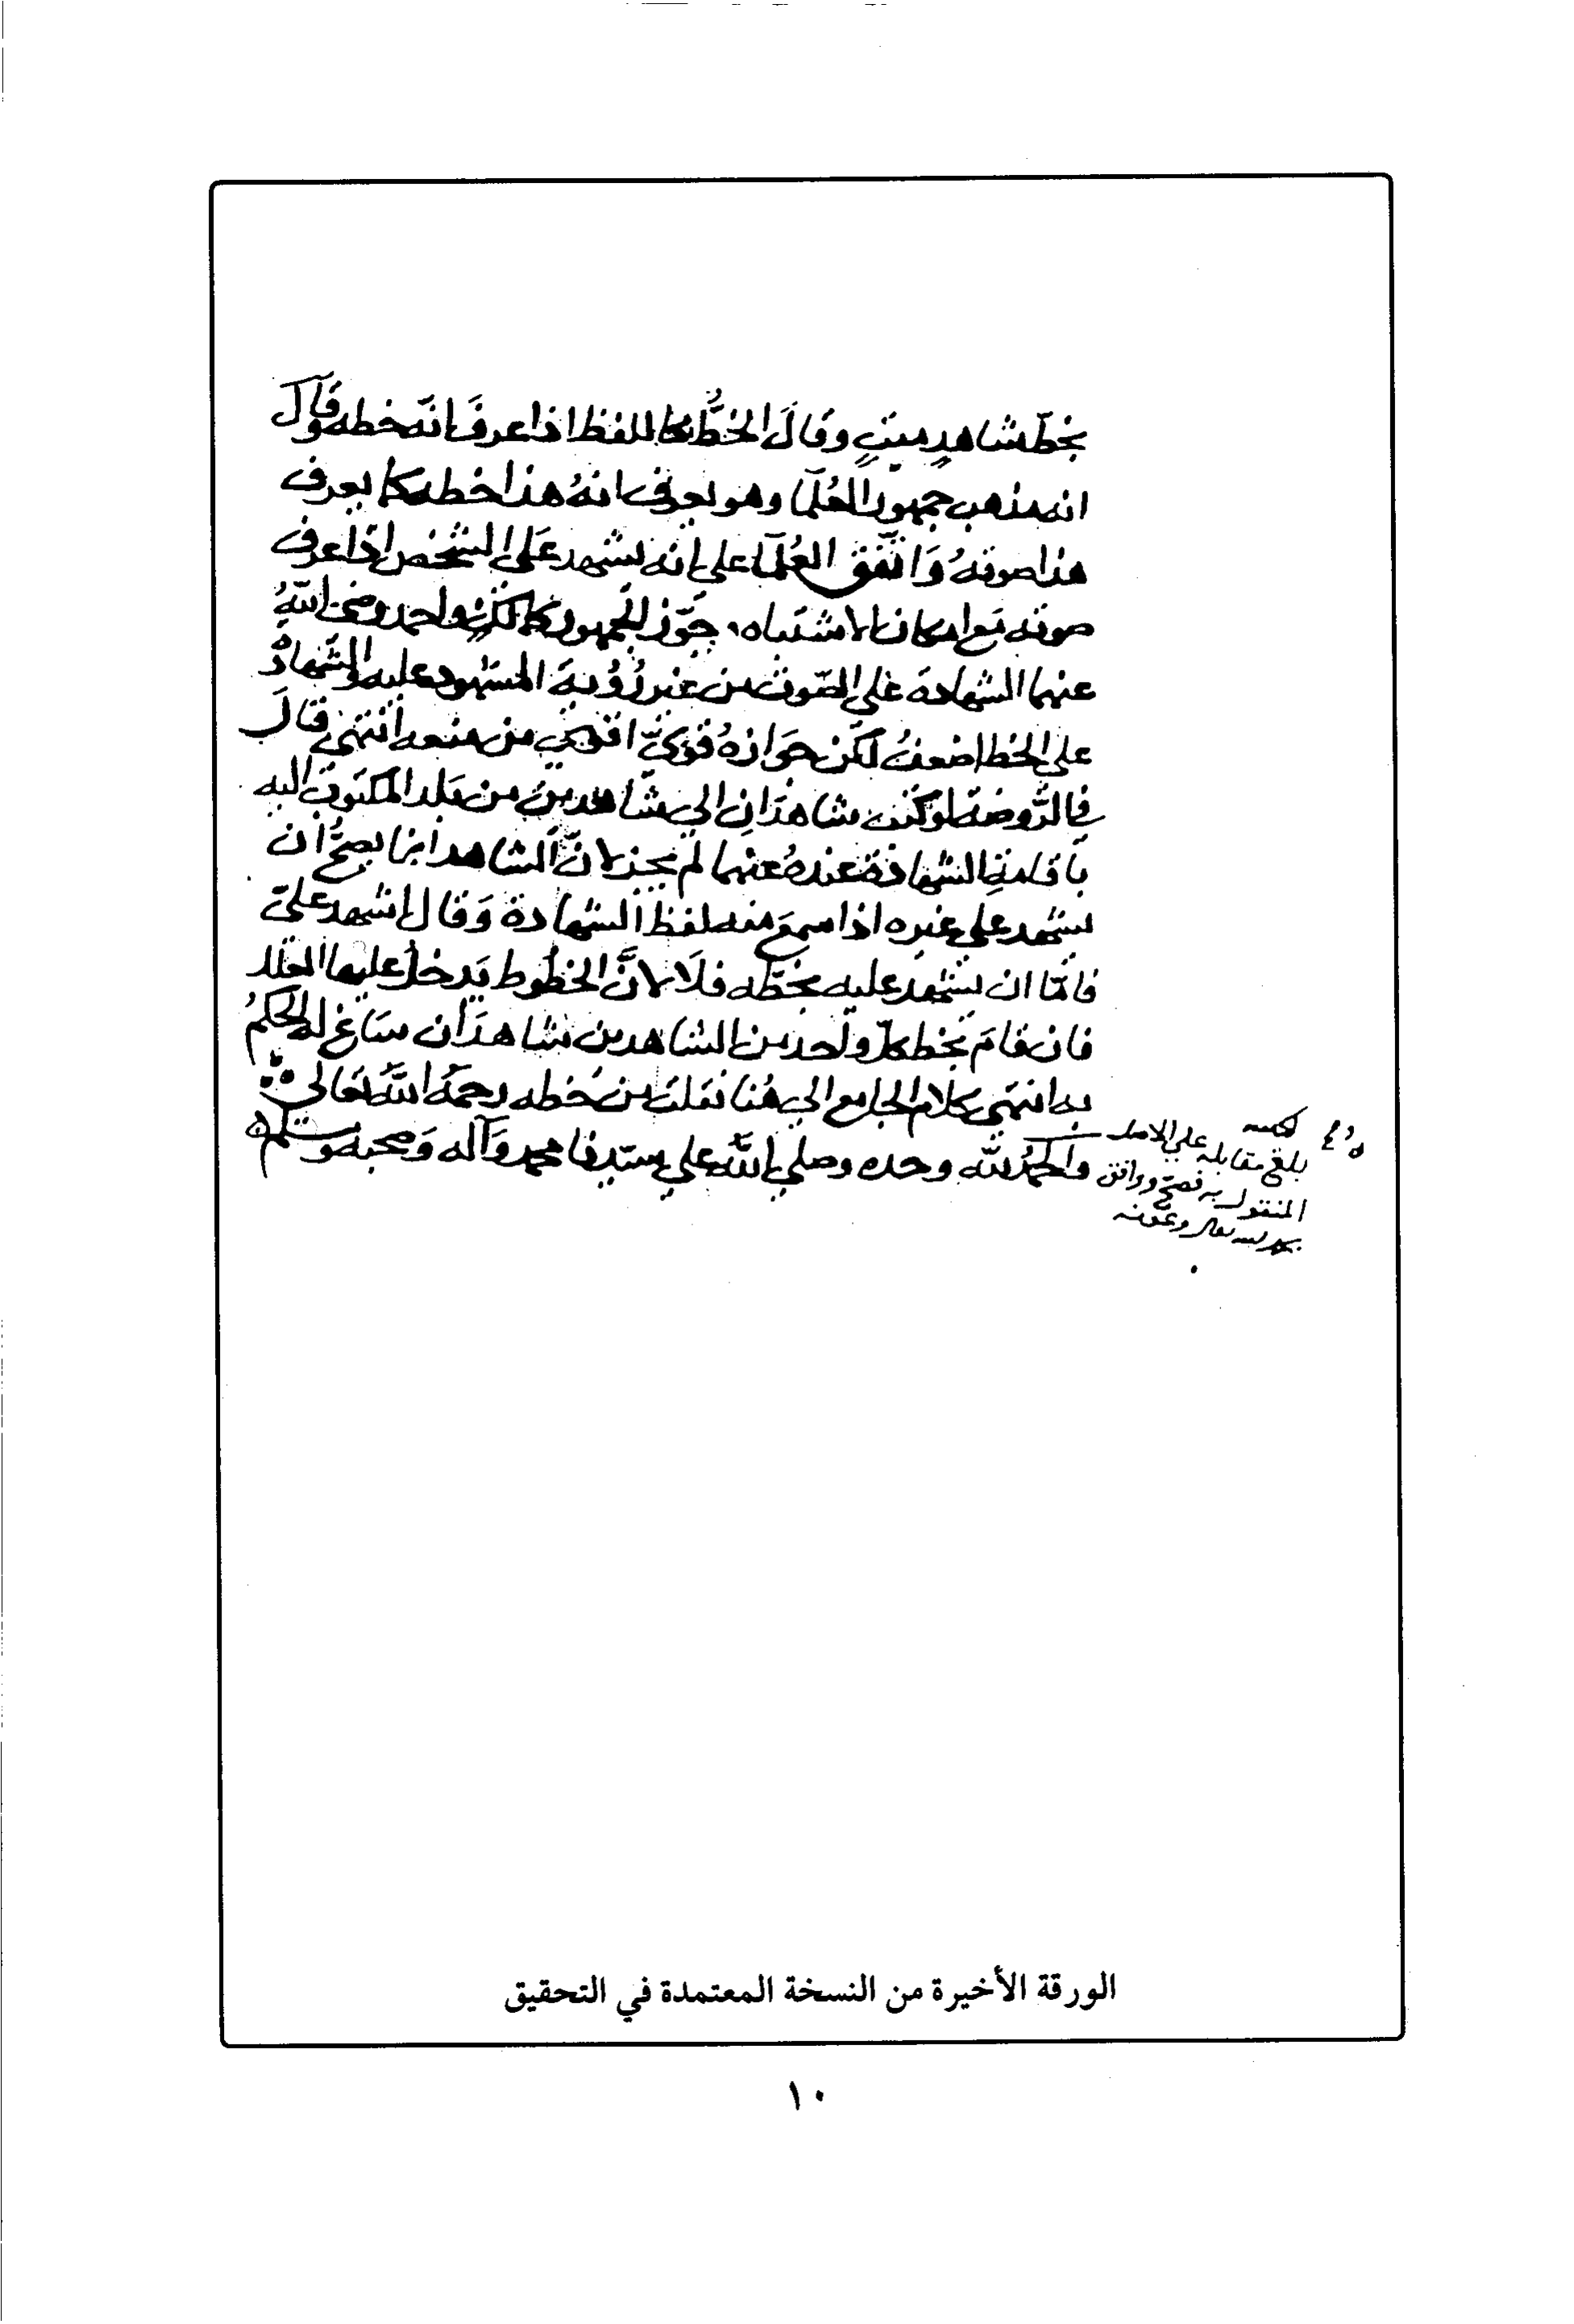 بخطّ شاهدٍ ميتٍ وقالَ الخطُّ كاللفظ اذا عرفَ انّه خطه وقآل
انه مذهب جمهور العُلمآ وهو يعرف انهُ هذا خطه كما يعرف
هذا صوتهُ وَاتّفق العُلمآ على انه يشهد عَلى الشخص اذا عرف
صوته مَع امكان الاشتباه، جَوّز الجمهور كمالك واحمد رضى اللهُ
عنهما الشهادة عَلى الصّوت من غير رُؤية المشهود عليه والشّهادة
على الخط اضعفُ لكن جوازهُ قوىّ اقوى من منعه انتهى قالَ
في الرّوضة لو كتب شاهدَان الى شاهدين من بَلد المكتوب اليه
باقامة الشهادة عندهُ عنهما لم يجز لانّ الشاهد انما يصحُّ ان
يشهد على غيره اذا سمعَ منه لفظ الشهادة وَقال اشهد علىّ
فامّا ان يشهد عليه بخطّه فلَا لانَّ الخطُوط يَدخل عليها العلل
فان قامَ بخط كلّ واحد من الشاهدين شاهدَان سَاغ له الحكمُ
به انتهى كلام الجامع الى هُنا نقلت من خطه رحمهُ اللهُ تعَالى
وَالحمدُ لله وحده وصلى اللهُ على سيّدنا محمد وَآله وَصحبه وسلم
بلغ مقابلة على الاصل
المنقول به فصح ووافق
بحمد الله تعالى وعونه
الورقة الأخيرة من النسخة المعتمدة في التحقيق
١٠